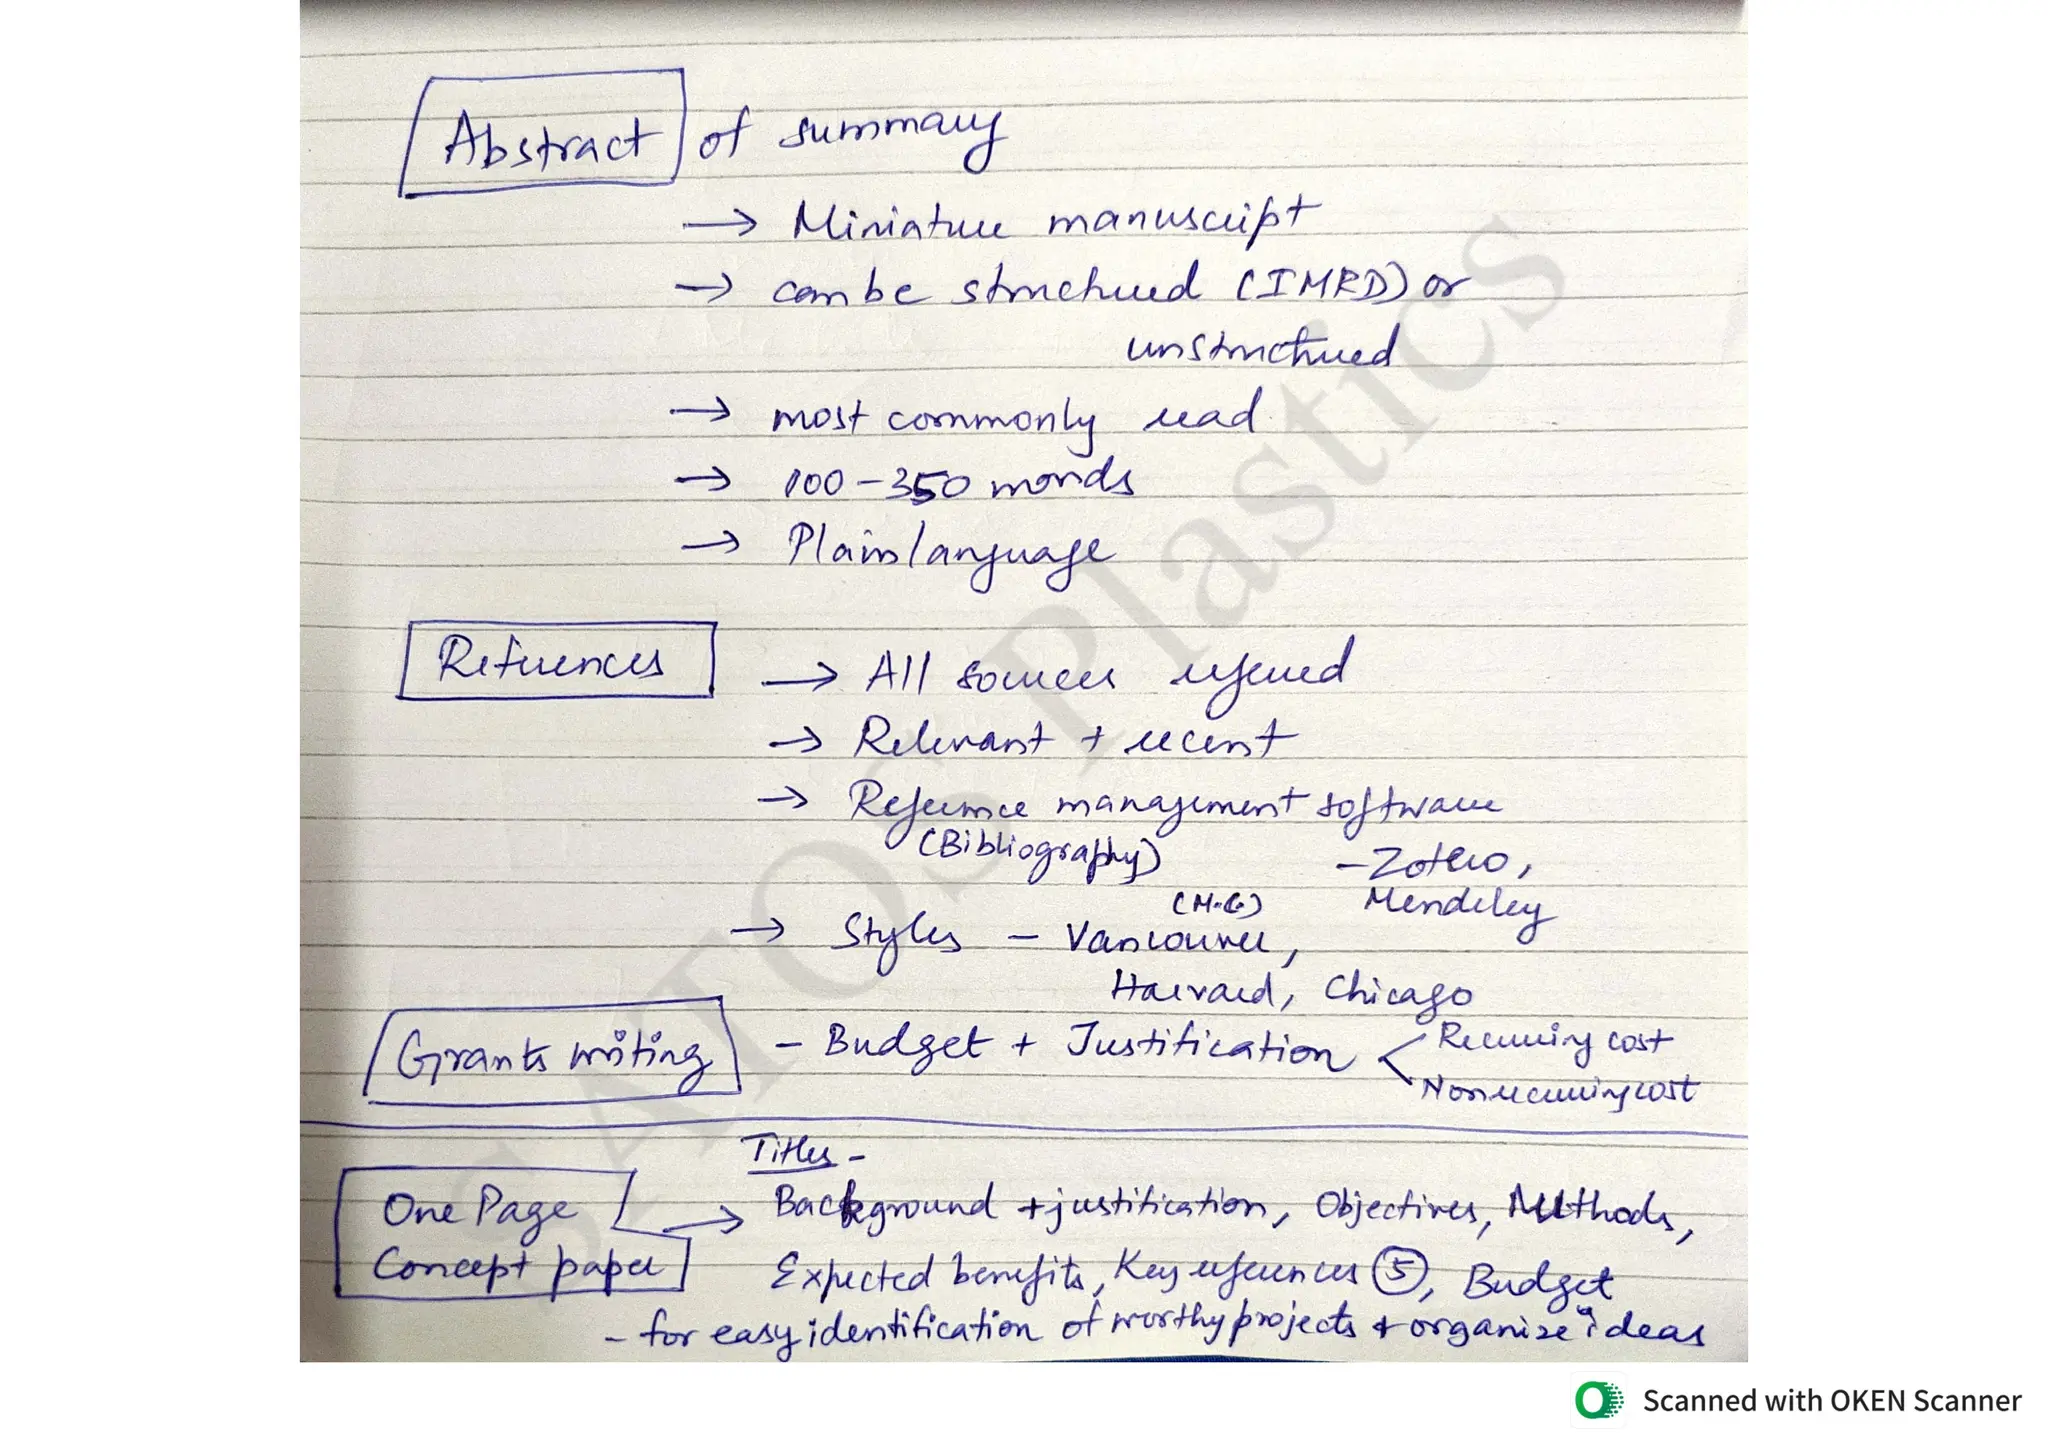 Abstract of summary
→ Miniature manuscript
→ can be structured (IMRD) or
unstructured
→ most commonly read
→ 100-350 words
→ Plain language
References
→ All sources referred
→ Relevant + recent
→ Reference management software
(Bibliography) - Zotero,
Mendeley
(M.C.)
→ Styles - Vancouver,
Harvard, Chicago
Grants writing - Budget + Justification < Recurring cost
Nonrecurring cost
Titles -
One Page → Background + justification, Objectives, Methods,
Concept paper Expected benefits, Key references (5), Budget
- for easy identification of worthy projects + organize ideas
SATOS Plastics
Scanned with OKEN Scanner